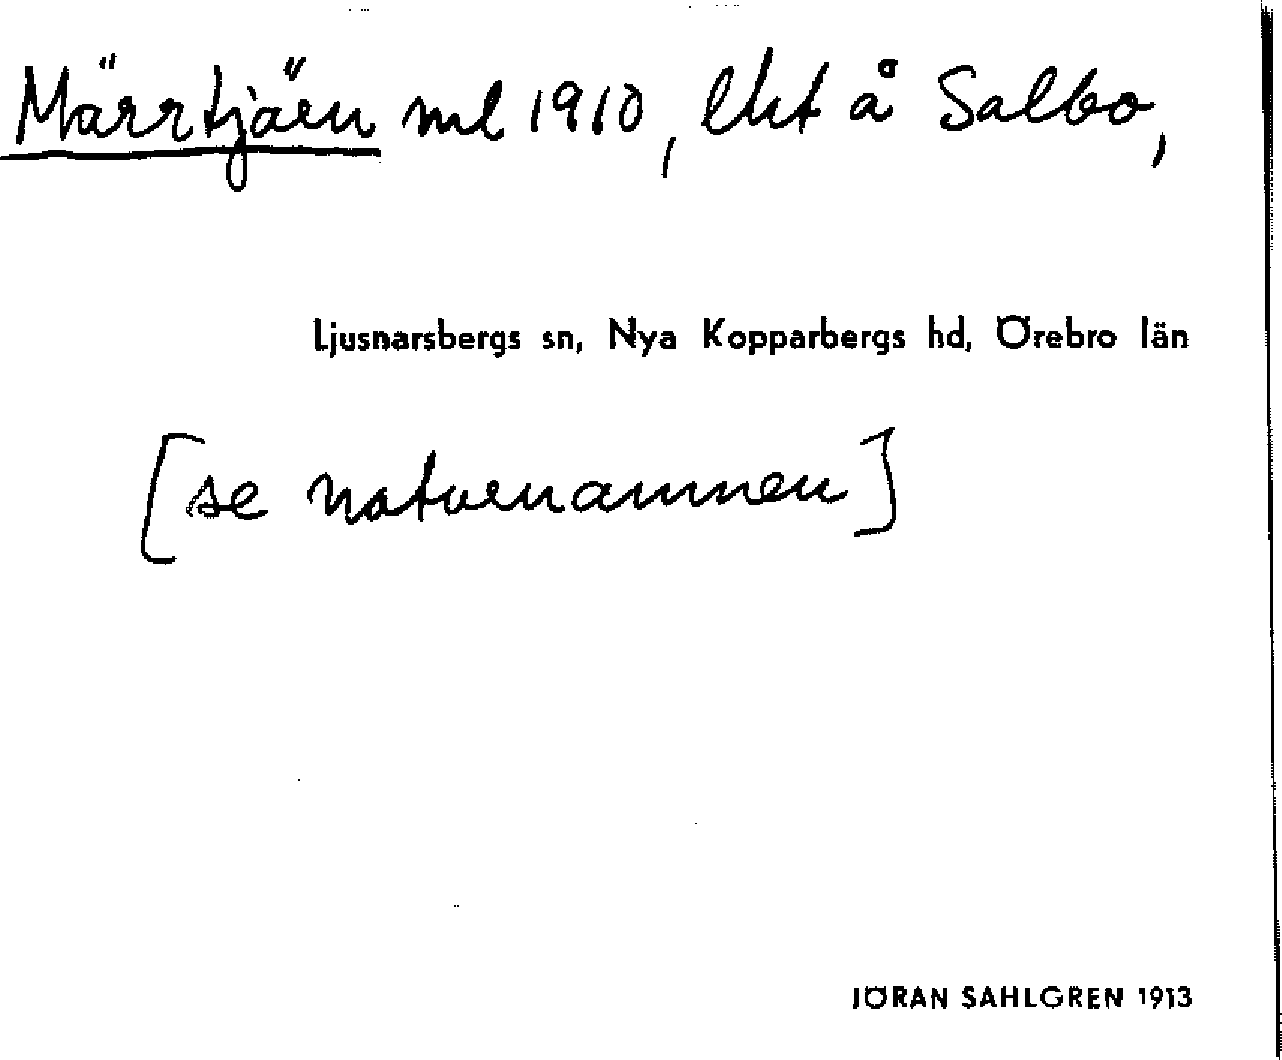 Märrtjärn ml 1910, lht å Salbo,
Ljusnarsbergs sn, Nya Kopparbergs hd, Örebro län
[se naturnamnen]
JÖRAN SAHLGREN 1913